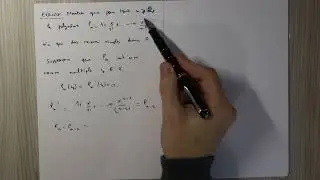 Exercice Montrer que pour tout n
le polynôme Pn = 1 + x/1! + ... +
n'a que des racines simples dans C
Supposons que Pn ait une
racine multiple
Pn' = 1 + x/1! + ... + x^(n-1)/(n-1)! = Pn-1
Pn - Pn-1 =